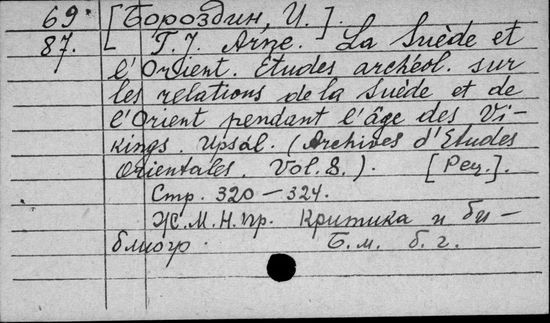 69. [Бороздин, И.].
87. T. J. Arne. La Suède et
l'Orient. Etudes archéol. sur
les relations de la Suède et de
l'Orient pendant l'âge des Vi-
kings. Upsal. (Archives d'Etudes
Orientales. Vol. 8.). [Рец.].
Стр. 320-324.
Ж.М.Н.Пр. Критика и би-
блиогр. Б.м. б.г.